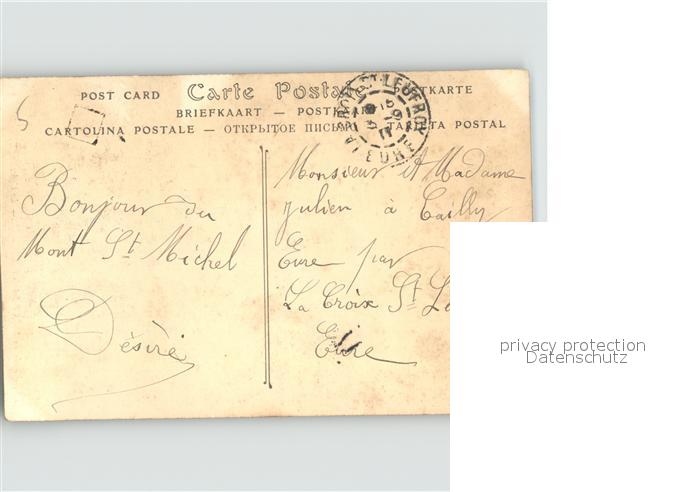 POST CARD Carte Postale POSTKARTE
BRIEFKAART — POSTKARTE
CARTOLINA POSTALE — ОТКРЫТОЕ ПИСЬМО TARJETA POSTAL
LA CROIX-ST-LEUFROY
EURE
Bonjour du
Mont St Michel
Désiré
Monsieur et Madame
Julien à Cailly
Eure par
La Croix St L
Eure
privacy protection
Datenschutz